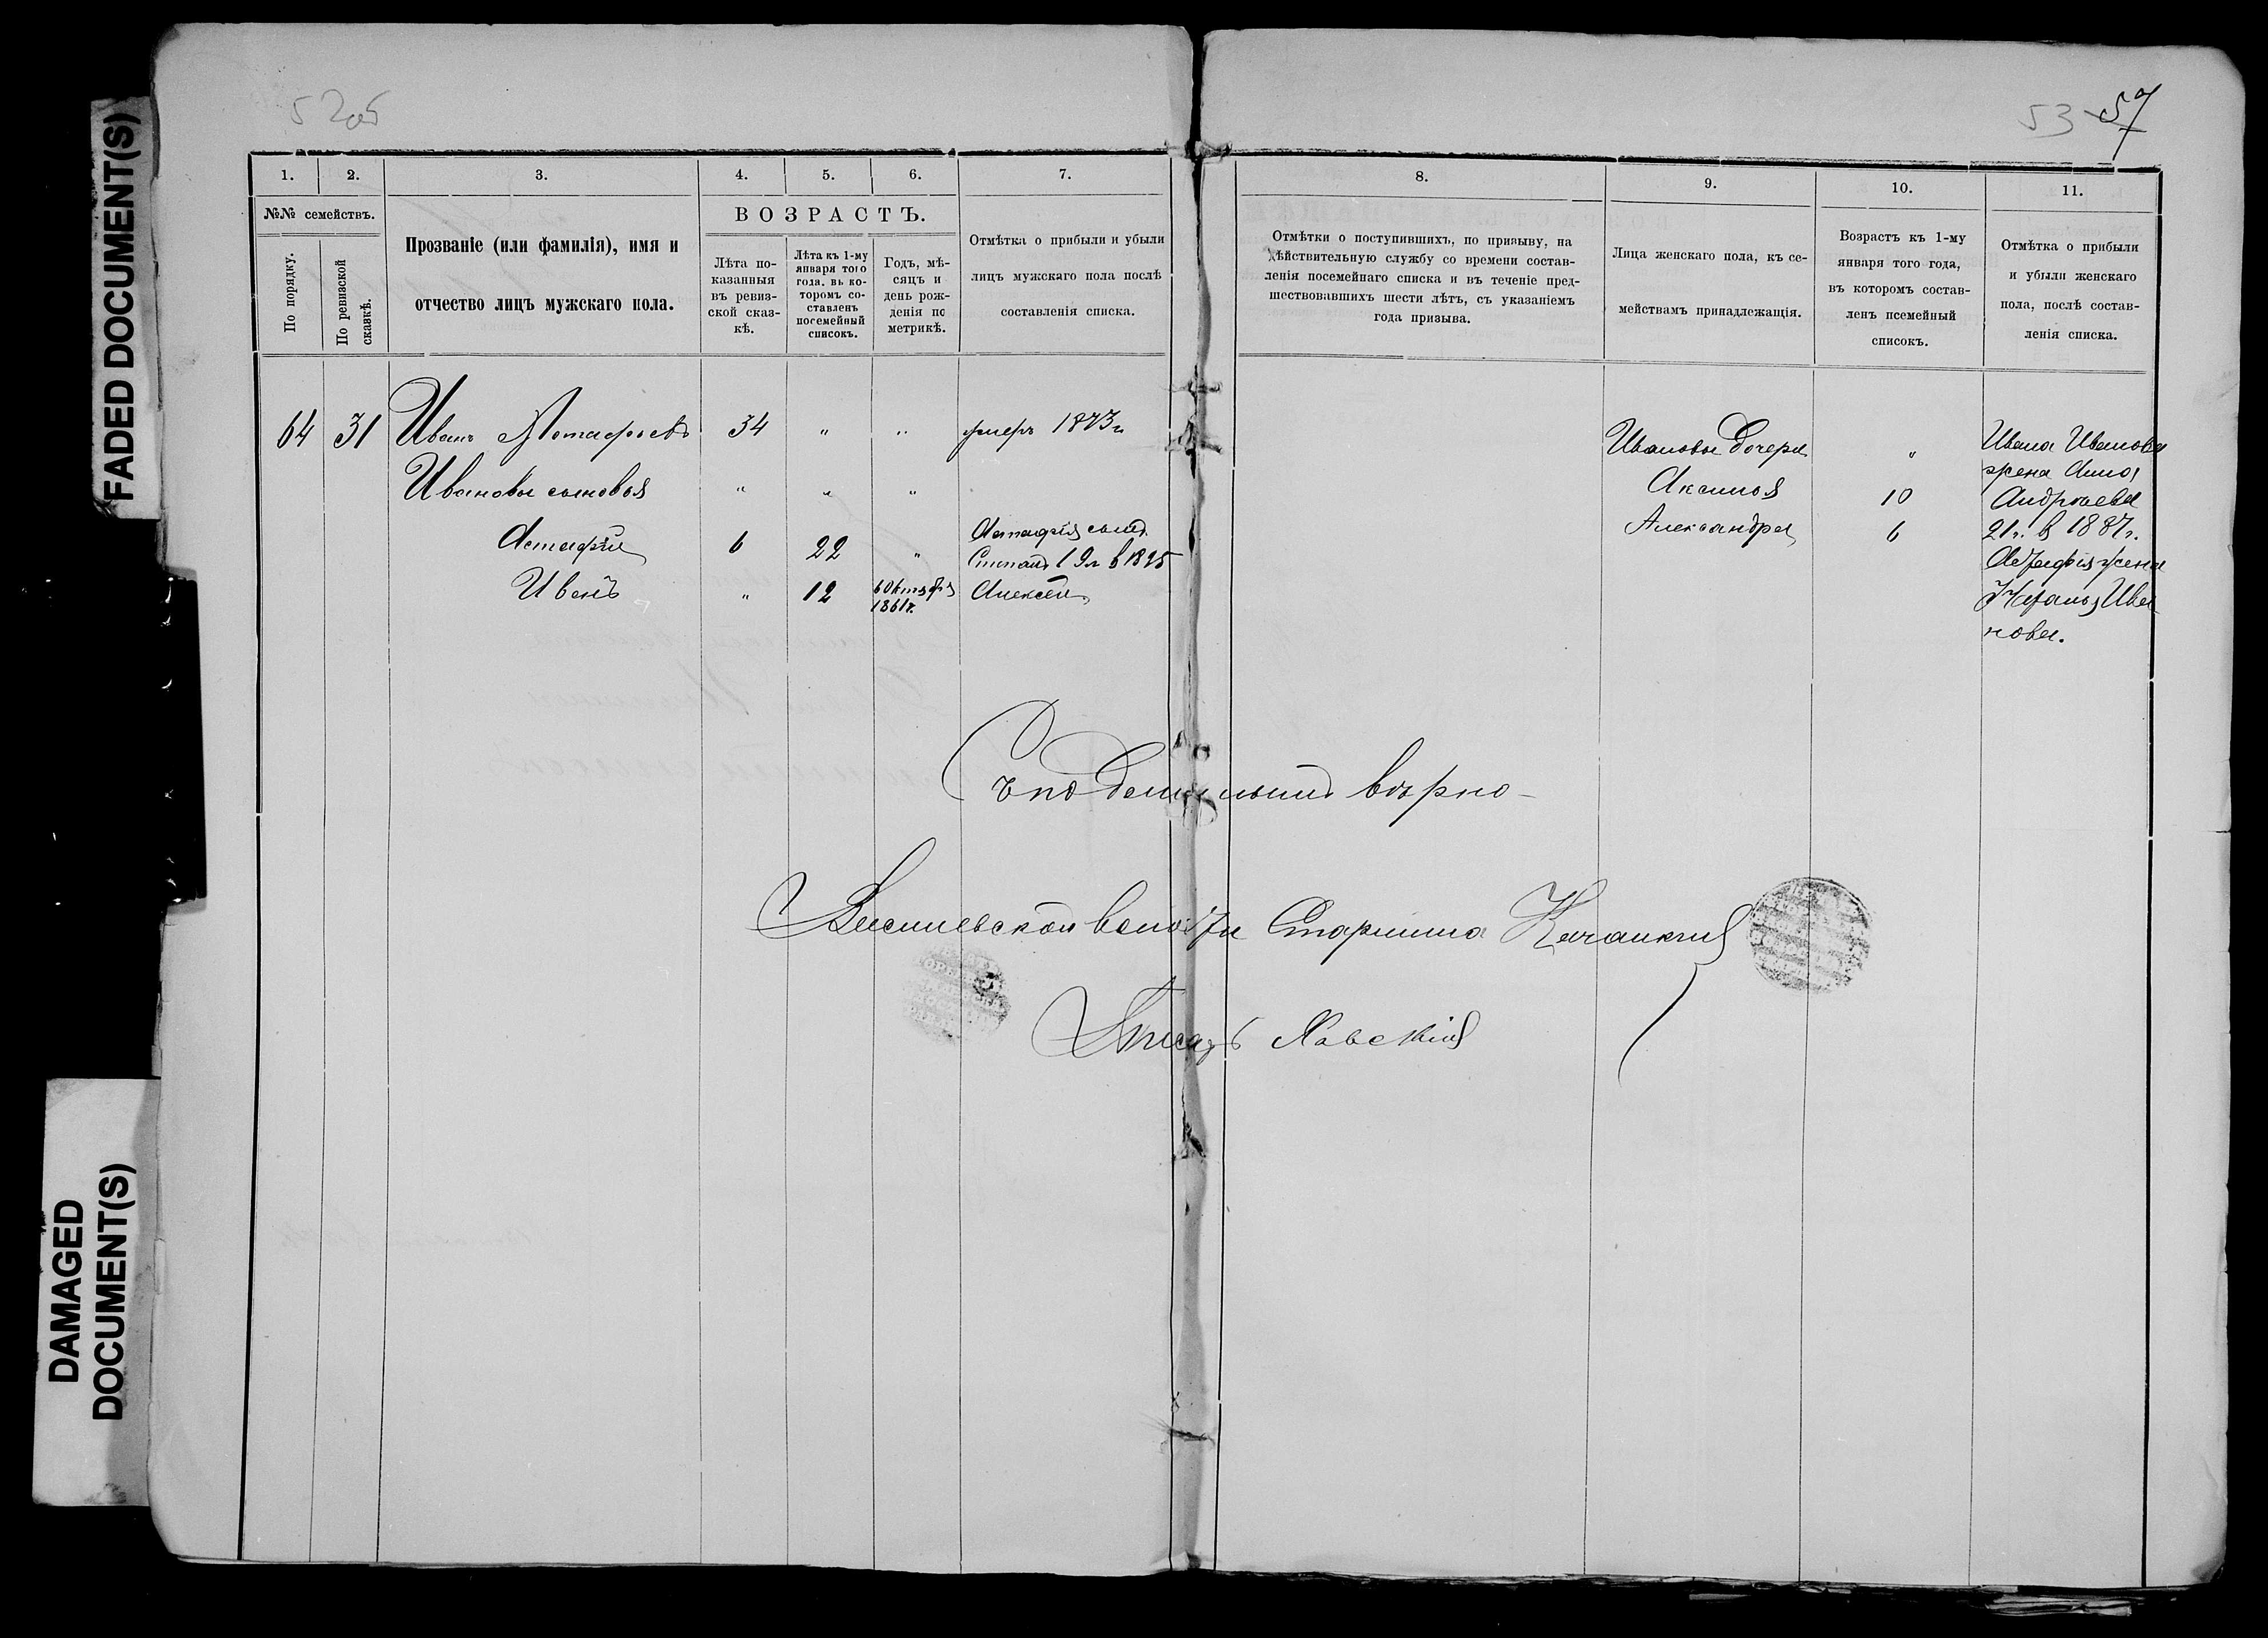 FADED DOCUMENT(S)
DAMAGED
DOCUMENT(S)
52об
53
57
1.
2.
3.
4.
5.
6.
7.
№№ семействъ.
По порядку.
По ревизской
сказкѣ.
Прозваніе (или фамилія), имя и
отчество лицъ мужскаго пола.
ВОЗРАСТЪ.
Лѣта по-
казанныя
въ ревиз-
ской сказ-
кѣ.
Лѣта къ 1-му
января того
года, въ ко-
торомъ со-
ставленъ
посемейный
списокъ.
Годъ, мѣ-
сяцъ и
день рож-
денія по
метрикѣ.
Отмѣтка о прибыли и убыли
лицъ мужскаго пола послѣ
составленія списка.
8.
9.
10.
11.
Отмѣтки о поступившихъ, по призыву, на
дѣйствительную службу со времени состав-
ленія посемейнаго списка и въ теченіе пред-
шествовавшихъ шести лѣтъ, съ указаніемъ
года призыва.
Лица женскаго пола, къ се-
мействамъ принадлежащія.
Возрастъ къ 1-му
января того года,
въ которомъ состав-
ленъ псемейный
списокъ.
Отмѣтка о прибыли
и убыли женскаго
пола, послѣ состав-
ленія списка.
64 31 Иванъ Астафьевъ 34 " " умеръ 1873г
Ивановы сыновья " " "
Астафій 6 22 " Астафія сынъ
Степанъ 1 9 в 1895
Иванъ " 12 6 Октября
1861г. Алексѣй
Ивановы дочери "
Аксинья 10
Александра 6
Ивана Иванова
жена Анна
Андреева
21г. в 1887г.
Астафія жена
Наталья Ива
нова.
Съ подлиннымъ вѣрно
волости Старшина
Писарь